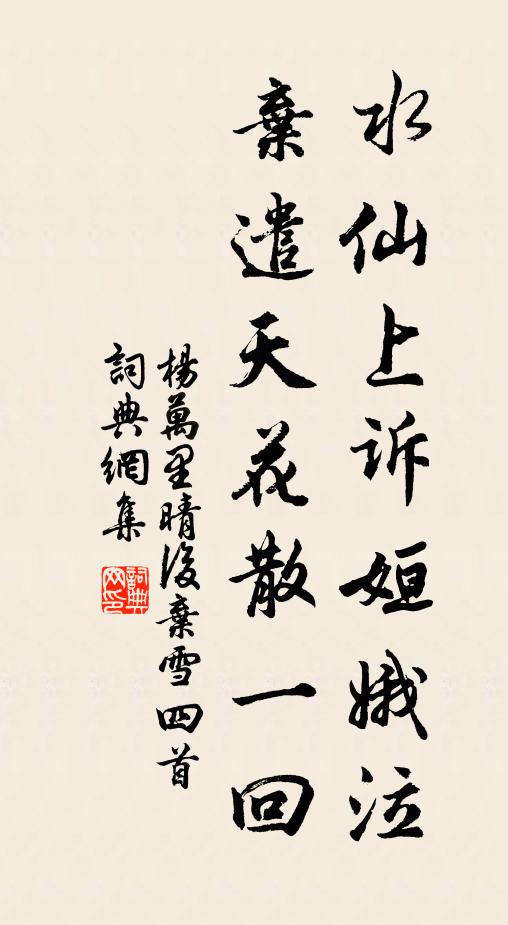 水仙上诉姮娥泣
棄遣天花散一回
楊萬里晴後棄雪四首
詞典網集
詞典网印